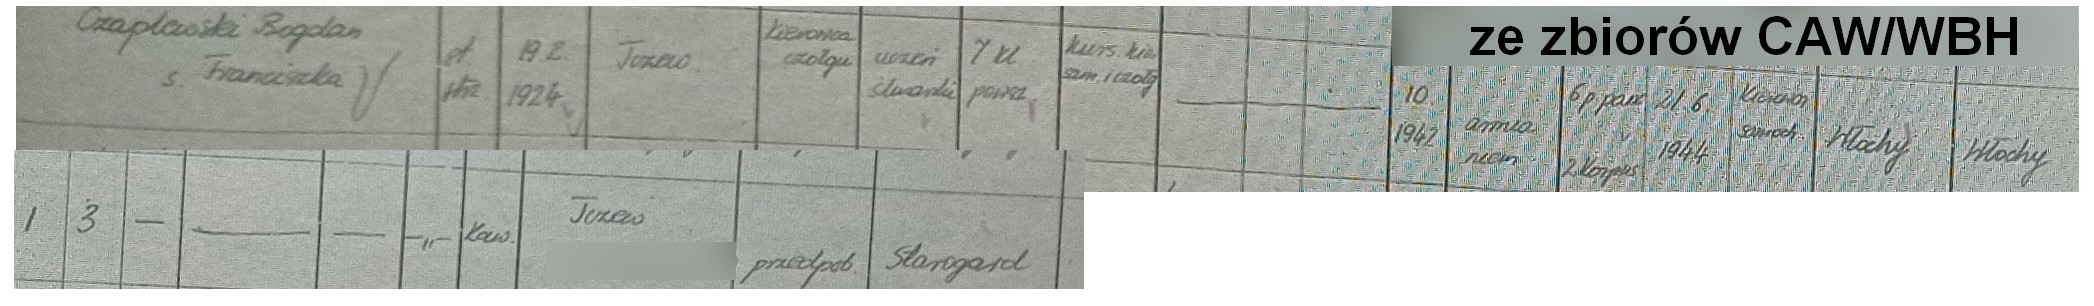 ze zbiorów CAW/WBH
Czaplewski Bogdan
s. Franciszka
st.
strz.
19 2.
1924
Tczew
kierowca
czołgu
uczeń
ślusarski
7 kl
powsz.
kurs. kier.
sam. i czołg
10.
1942
armia
niem.
6 p panc
2 Korpus
21.6.
1944
kierowca
samoch.
Włochy
Włochy
1
3
—
—
—
—„—
Kaw.
Tczew
przedpob.
Starogard